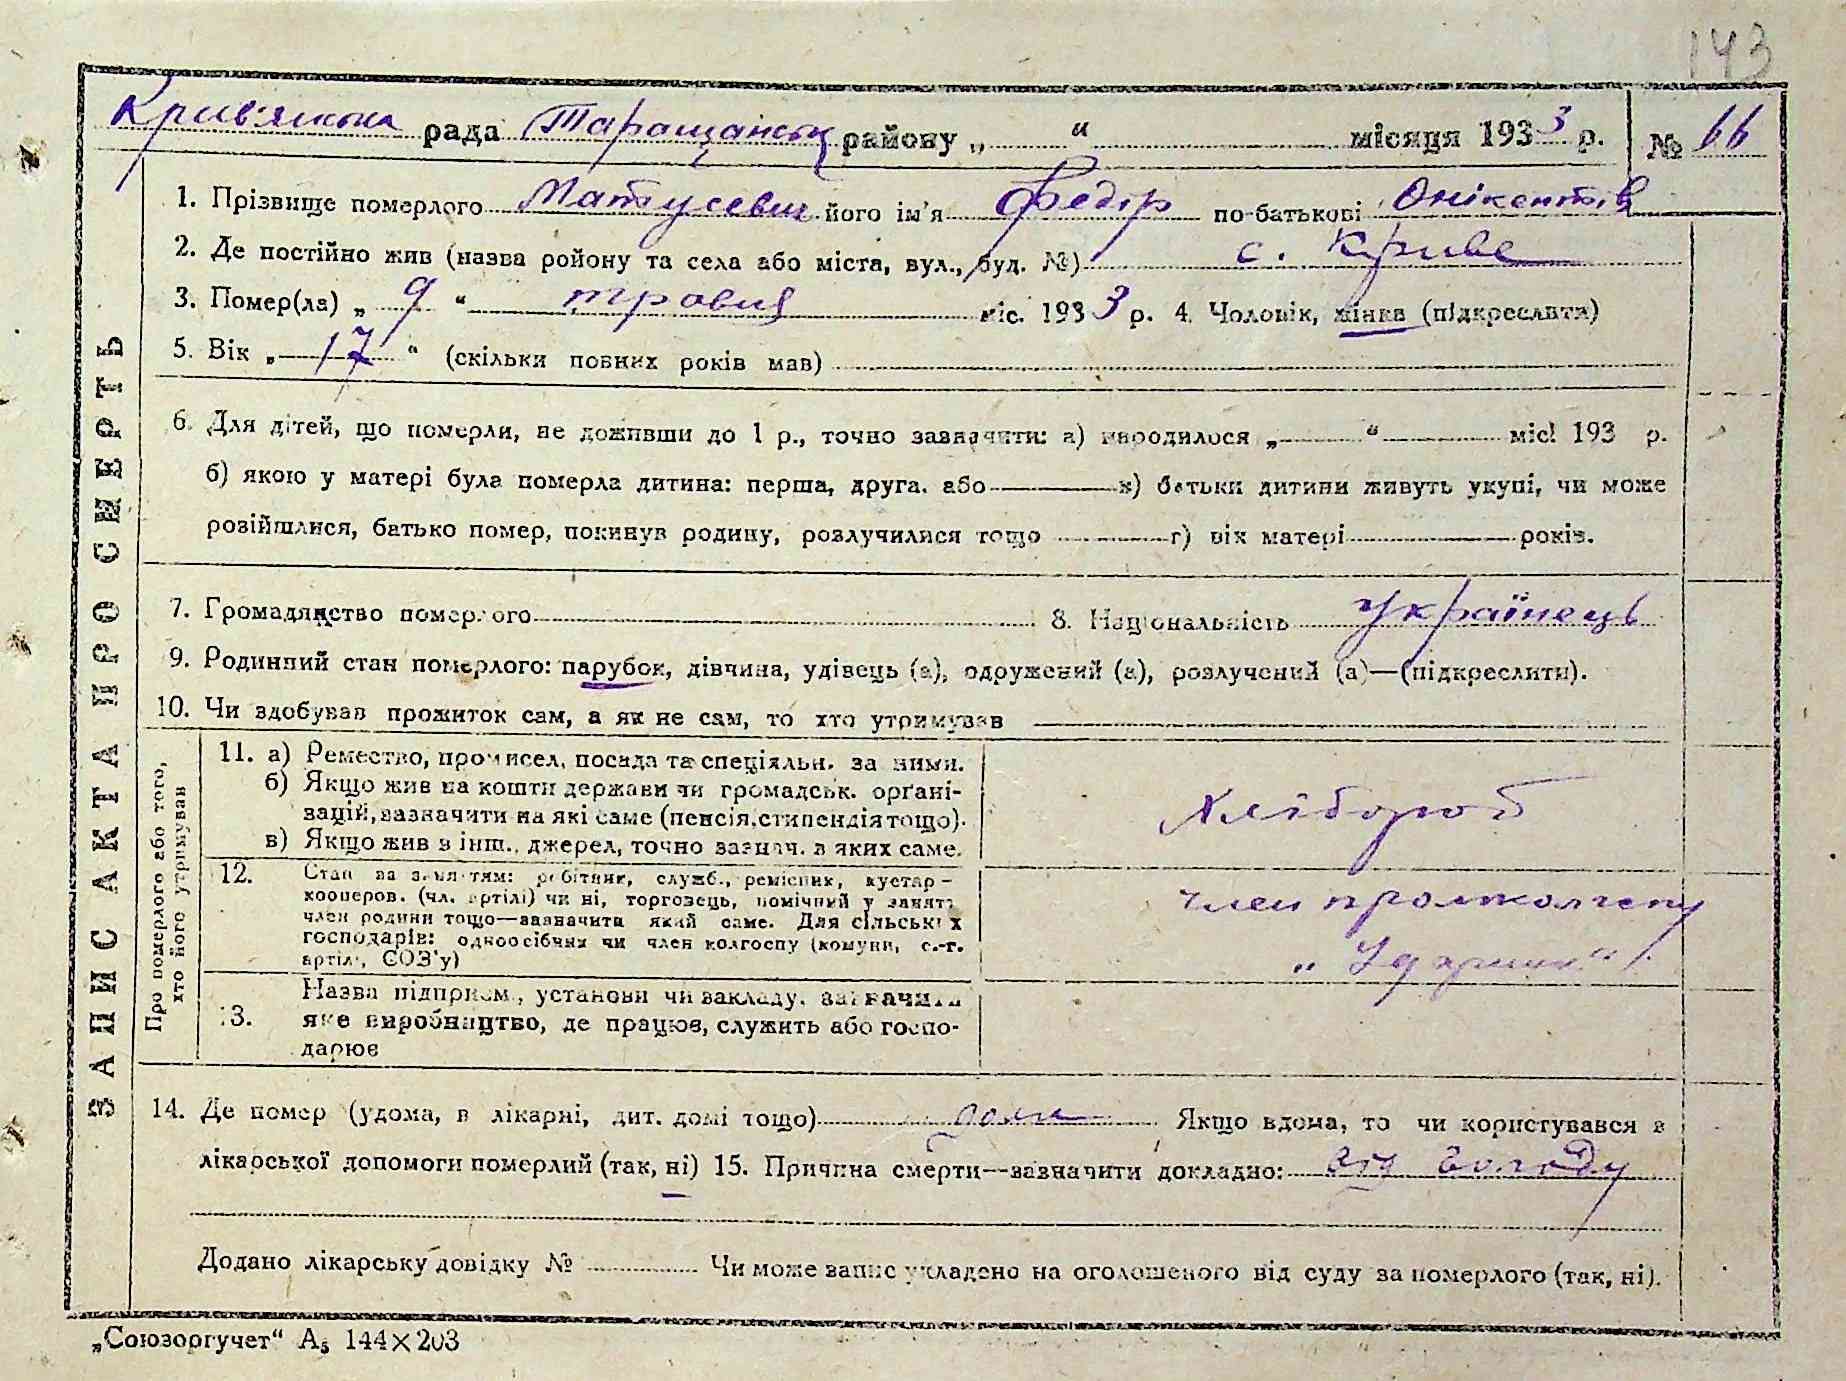 143
Крив'янська рада Таращанськ району „ “ місяця 1933 р. № 66
1. Прізвище померлого Матусевич його ім'я Федір по-батькові Онікентів
2. Де постійно жив (назва ройону та села або міста, вул., буд. №) с. Криве
3. Помер(ла) „ 9 “ травня міс. 1933 р. 4. Чоловік, жінка (підкреслити)
5. Вік „ 17 “ (скільки повних років мав)
6. Для дітей, що померли, не доживши до 1 р., точно зазначити: а) народилося „ “ міс. 193 р.
б) якою у матері була померла дитина: перша, друга. або в) батьки дитини живуть укупі, чи може
розійшлися, батько помер, покинув родину, розлучилися тощо г) вік матері років.
7. Громадянство померлого 8. Національність Українець
9. Родинний стан померлого: парубок, дівчина, удівець (а), одружений (а), розлучений (а)—(підкреслити).
10. Чи здобував прожиток сам, а як не сам, то хто утримував
ЗАПИС АКТА ПРО СМЕРТЬ
Про померлого або того,
хто його утримував
11. а) Ремество, промисел, посада та спеціяльн. за ними.
б) Якщо жив на кошти держави чи громадськ. орґані-
зацій, зазначити на які саме (пенсія, стипендія тощо).
в) Якщо жив з інш. джерел, точно зазнач. з яких саме.
Хлібороб
12. Стан за заняттям: робітник, служб., ремісник, кустар-
кооперов. (чл. артілі) чи ні, торговець, помічний у занятт
член родини тощо—зазначити який саме. Для сільських
господарів: одноосібник чи член колгоспу (комуни, с.-г.
артілі, СОЗ'у)
член
13. Назва підприєм., установи чи закладу, зазначити
яке виробництво, де працює, служить або госпо-
дарює
14. Де помер (удома, в лікарні, дит. домі тощо) дома Якщо вдома, то чи користувався з
лікарської допомоги померлий (так, ні) 15. Причина смерти—зазначити докладно: від голоду
Додано лікарську довідку № Чи може запис укладено на оголошеного від суду за померлого (так, ні).
„Союзоргучет“ А5 144×203